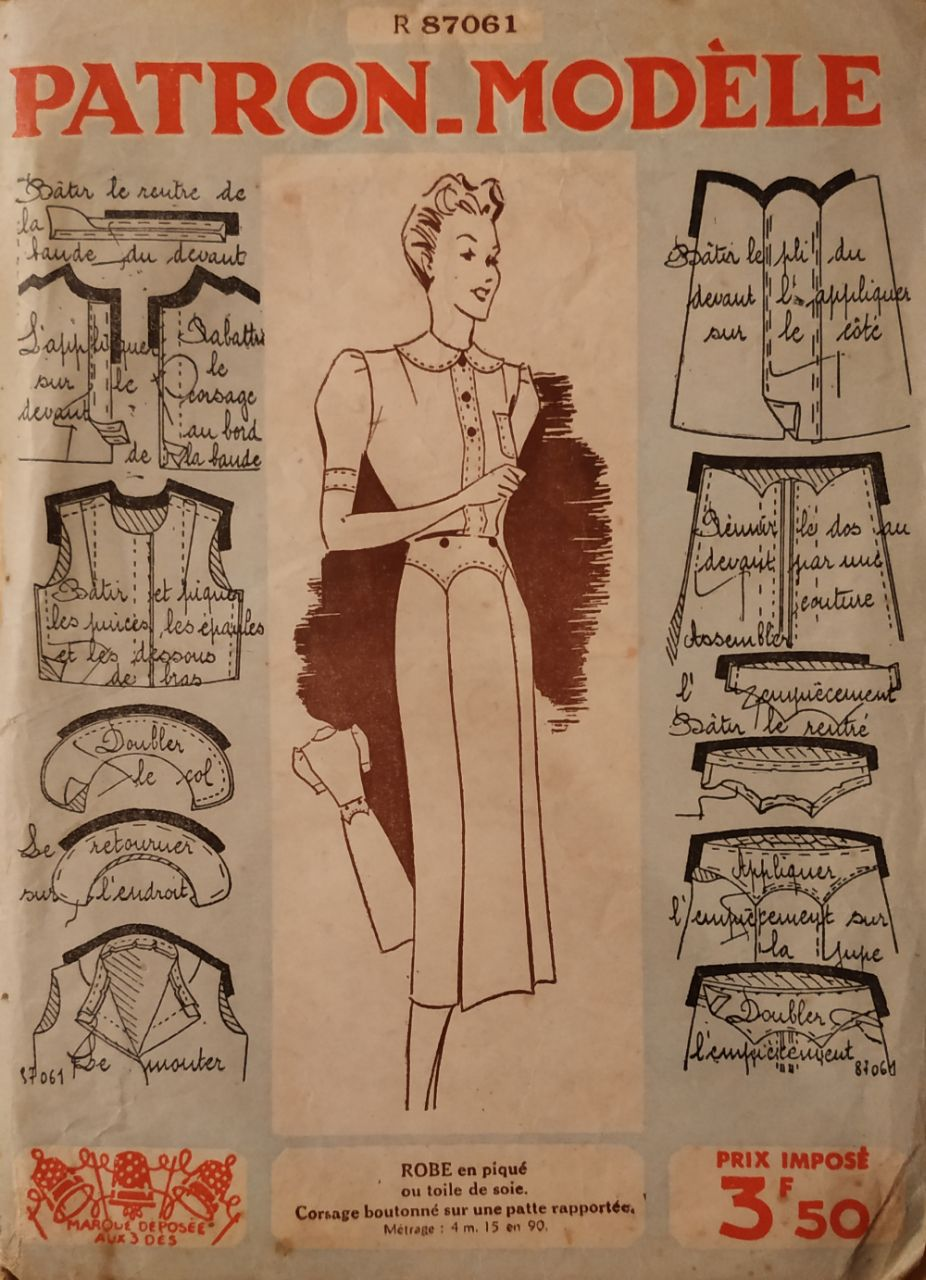 R 87061
PATRON-MODÈLE
Bâtir le rentre de
la
bande du devant
L'appliquer
sur le
devant
Rabattre
le
corsage
au bord
de la bande
Bâtir et piquer
les pinces, les épaules
et les dessous
de bras
Doubler
le col
Le retourner
sur l'endroit
Le monter
87061
Bâtir le pli du
devant l'appliquer
sur le côté
Réunir le dos au
devant par une
couture
Assembler
l'empiècement
Bâtir le rentré
Appliquer
l'empiècement sur
la jupe
Doubler
l'empiècement
87061
MARQUE DEPOSÉE
AUX 3 DES
ROBE en piqué
ou toile de soie.
Corsage boutonné sur une patte rapportée.
Métrage : 4 m. 15 en 90.
PRIX IMPOSÉ
3F50